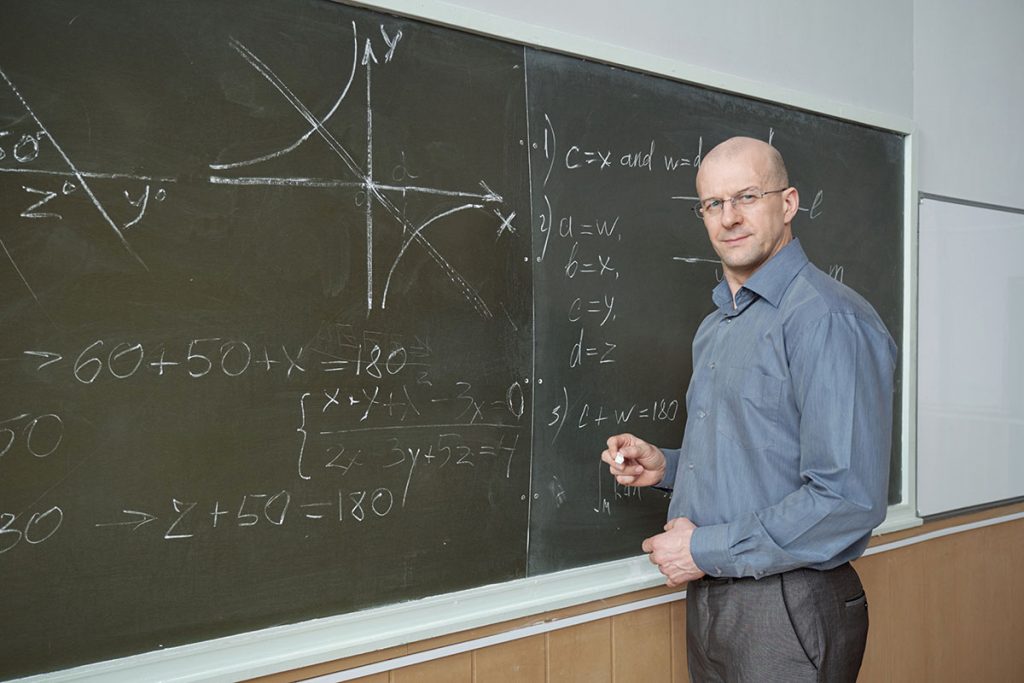 y
50°
z° y°
x
60+50+x=180
x+y+x-3x=0
2x-3y+5z=4
50
30 → z+50=180
1) c=x and w=d
2) a=w,
b=x,
c=y,
d=z
3) c+w=180
e
m